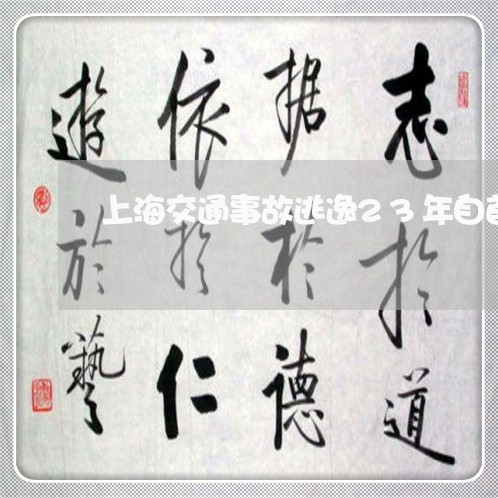 志扵道
据於德
依扵仁
遊於藝
上海交通事故逃逸23年自